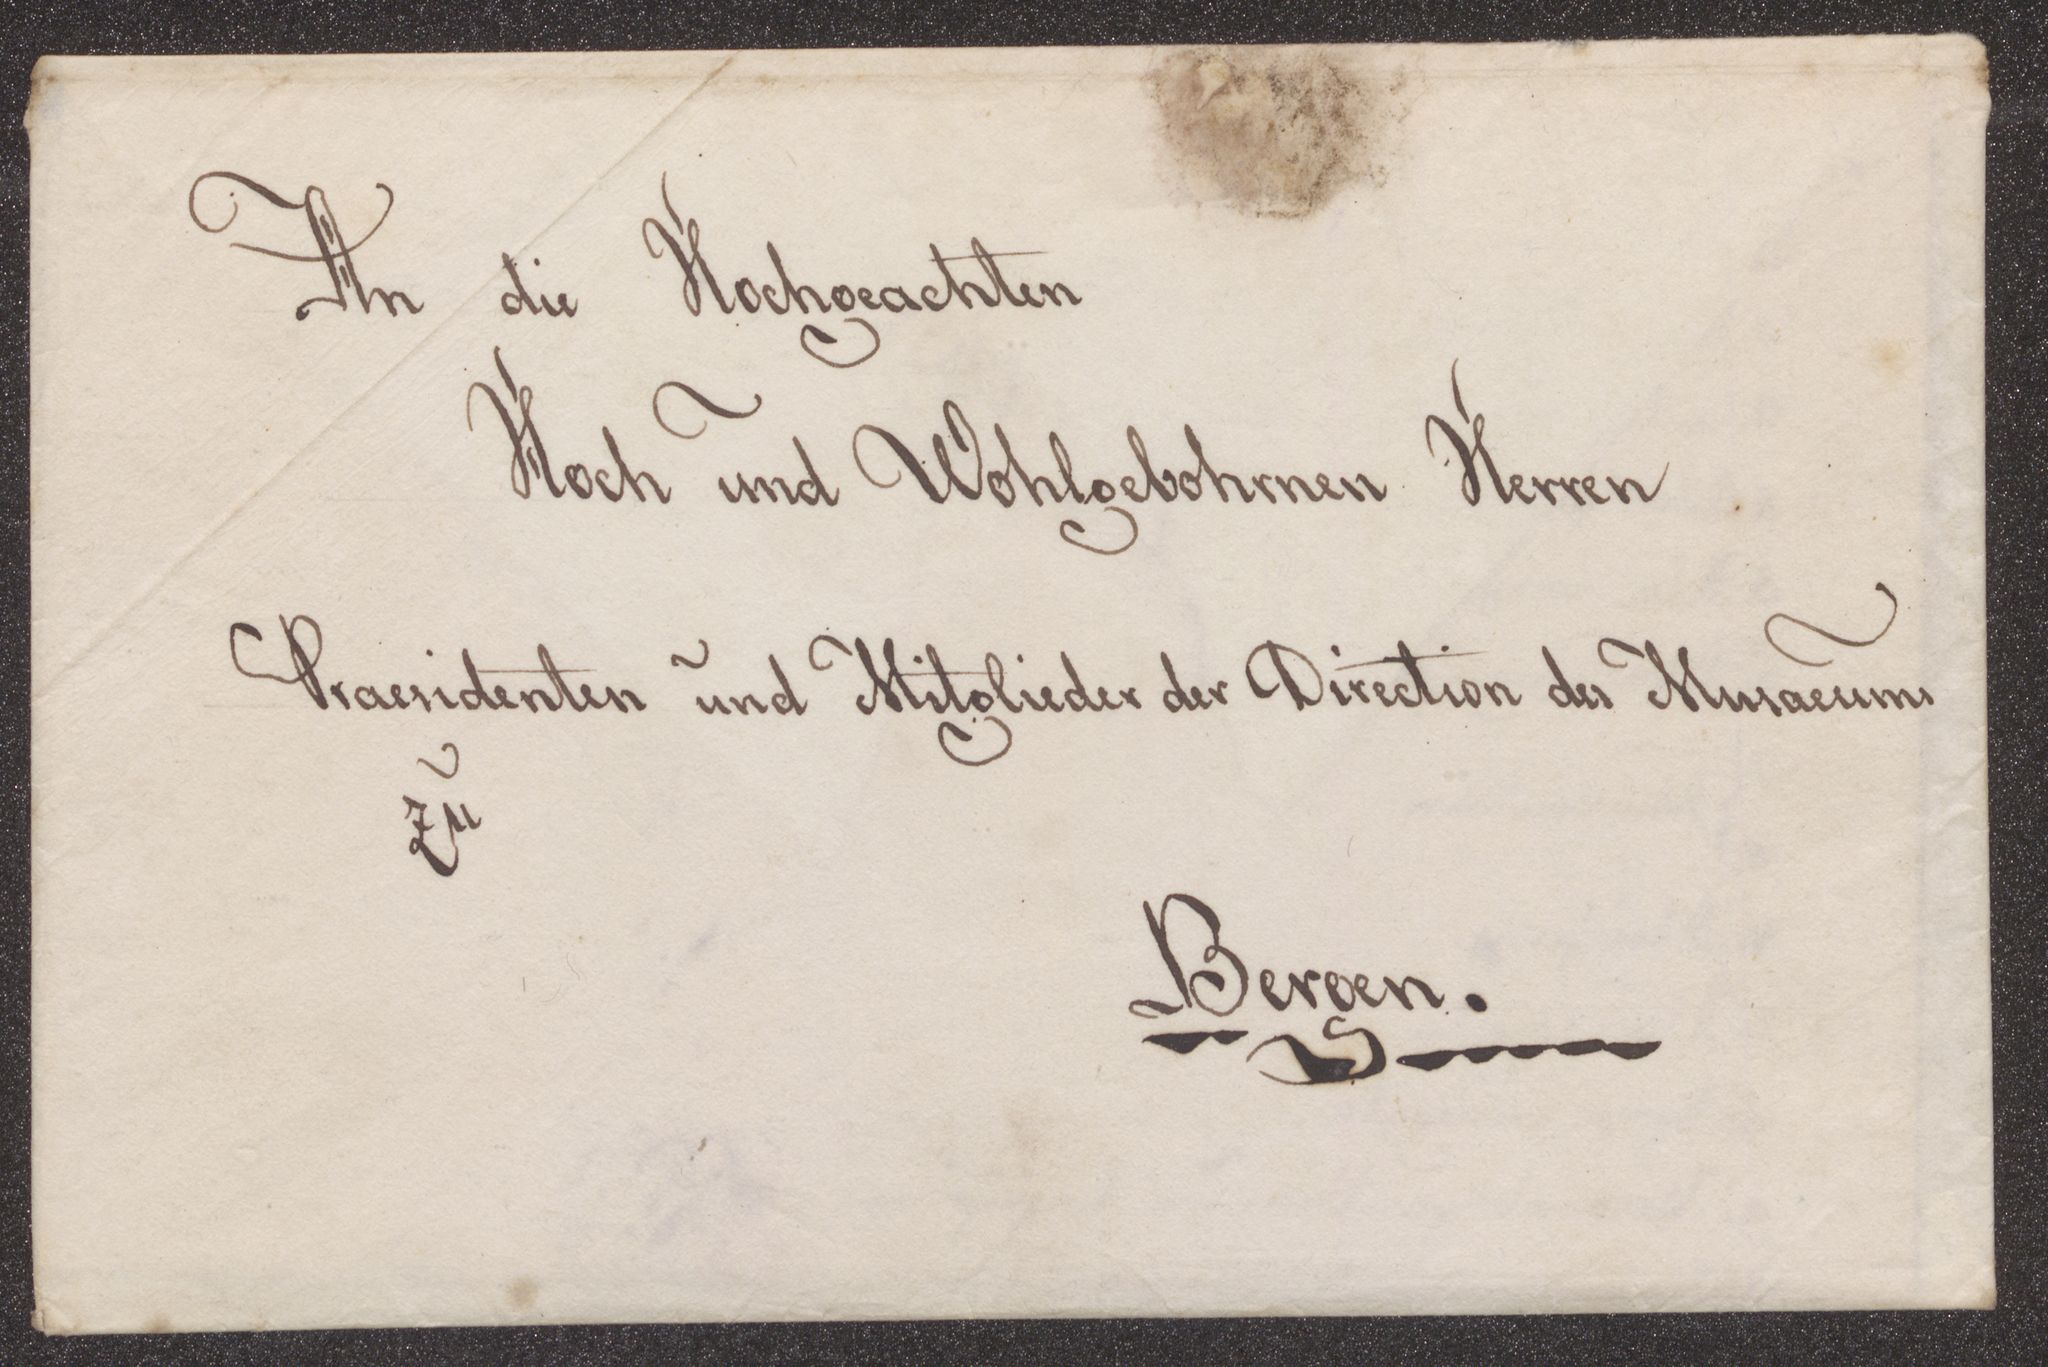 An die Hochgeachten
Hoch und Wohlgebohrnen Herren
Praesidenten und Mitglieder der Direction des Musaeums
zu
Bergen.